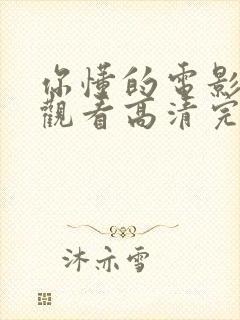 你懂的电影
觀看高清完
沐亦雪